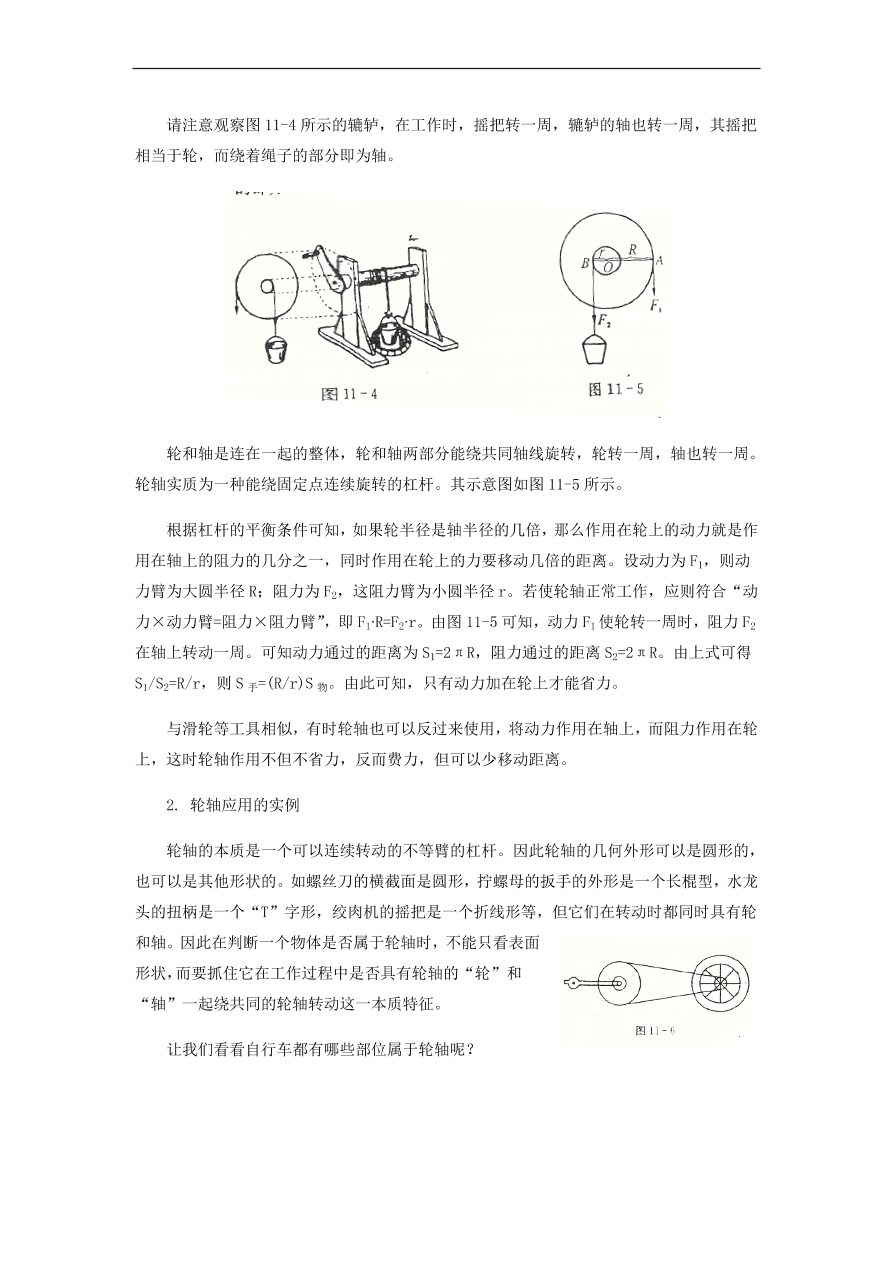 请注意观察图 11-4 所示的辘轳，在工作时，摇把转一周，辘轳的轴也转一周，其摇把
相当于轮，而绕着绳子的部分即为轴。
图 11-4
r
R
B
O
A
F₁
F₂
图 11-5
轮和轴是连在一起的整体，轮和轴两部分能绕共同轴线旋转，轮转一周，轴也转一周。
轮轴实质为一种能绕固定点连续旋转的杠杆。其示意图如图 11-5 所示。
根据杠杆的平衡条件可知，如果轮半径是轴半径的几倍，那么作用在轮上的动力就是作
用在轴上的阻力的几分之一，同时作用在轮上的力要移动几倍的距离。设动力为 F₁，则动
力臂为大圆半径 R；阻力为 F₂，这阻力臂为小圆半径 r。若使轮轴正常工作，应则符合“动
力×动力臂=阻力×阻力臂”，即 F₁·R=F₂·r。由图 11-5 可知，动力 F₁ 使轮转一周时，阻力 F₂
在轴上转动一周。可知动力通过的距离为 S₁=2πR，阻力通过的距离 S₂=2πR。由上式可得
S₁/S₂=R/r，则 S 手=(R/r)S 物。由此可知，只有动力加在轮上才能省力。
与滑轮等工具相似，有时轮轴也可以反过来使用，将动力作用在轴上，而阻力作用在轮
上，这时轮轴作用不但不省力，反而费力，但可以少移动距离。
2. 轮轴应用的实例
轮轴的本质是一个可以连续转动的不等臂的杠杆。因此轮轴的几何外形可以是圆形的，
也可以是其他形状的。如螺丝刀的横截面是圆形，拧螺母的扳手的外形是一个长棍型，水龙
头的扭柄是一个“T”字形，绞肉机的摇把是一个折线形等，但它们在转动时都同时具有轮
和轴。因此在判断一个物体是否属于轮轴时，不能只看表面
形状，而要抓住它在工作过程中是否具有轮轴的“轮”和
“轴”一起绕共同的轮轴转动这一本质特征。
图 11-6
让我们看看自行车都有哪些部位属于轮轴呢？